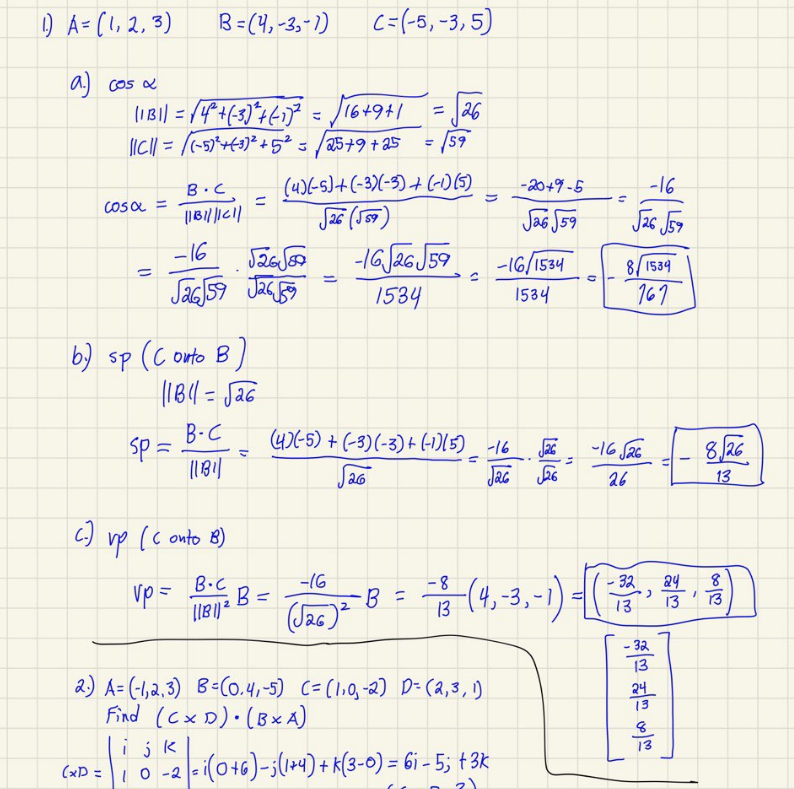 1.) A=(1,2,3) B=(4,-3,-1) C=(-5,-3,5)
a.) cos α
||B|| = √4²+(-3)²+(-1)² = √16+9+1 = √26
||C|| = √(-5)²+(-3)²+5² = √25+9+25 = √59
cosα = B·C / ||B|| ||C|| = (4)(-5)+(-3)(-3)+(-1)(5) / √26 (√59) = -20+9-5 / √26 √59 = -16 / √26 √59
= -16 / √26 √59 · √26 √59 / √26 √59 = -16√26 √59 / 1534 = -16√1534 / 1534 = - 8√1534 / 767
b.) sp (C onto B)
||B|| = √26
sp = B·C / ||B|| = (4)(-5)+(-3)(-3)+(-1)(5) / √26 = -16 / √26 · √26 / √26 = -16√26 / 26 = - 8√26 / 13
c.) vp (C onto B)
vp = B·C / ||B||² B = -16 / (√26)² B = -8/13 (4,-3,-1) = (-32/13, 24/13, 8/13)
[-32/13
24/13
8/13]
2.) A=(-1,2,3) B=(0,4,-5) C=(1,0,-2) D=(2,3,1)
Find (C×D)·(B×A)
C×D = | i j k
1 0 -2 | = i(0+6)-j(1+4)+k(3-0) = 6i-5j+3k